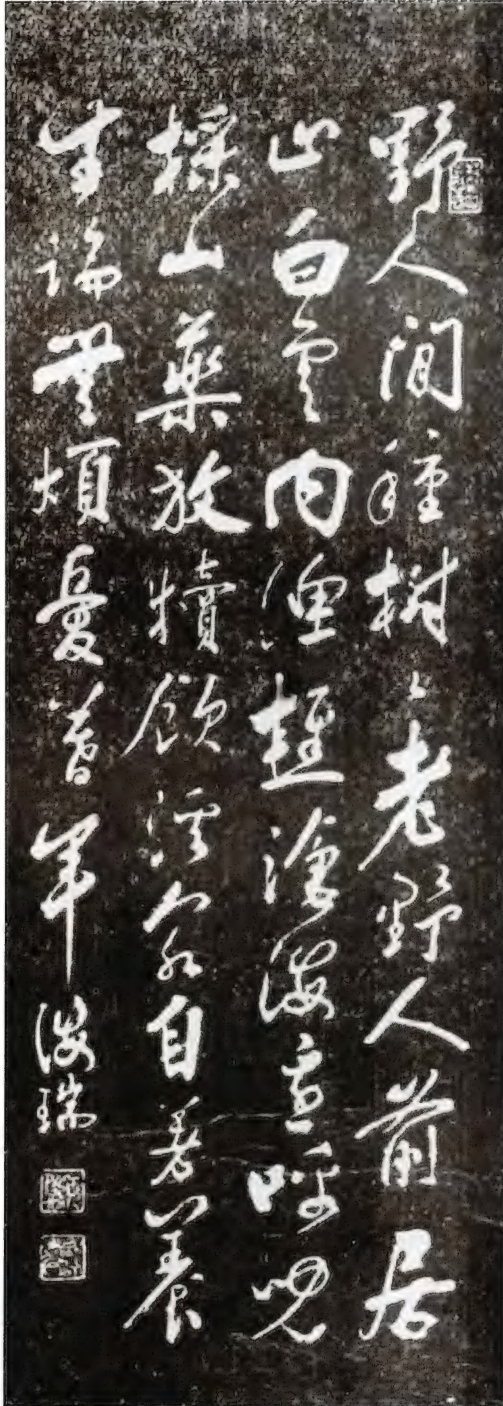 野人閒種樹〻老野人前居
止白雲内漁樵滄海邊呼兒
採山藥放犢飲溪泉自著養
生論無煩憂暮年 海瑞